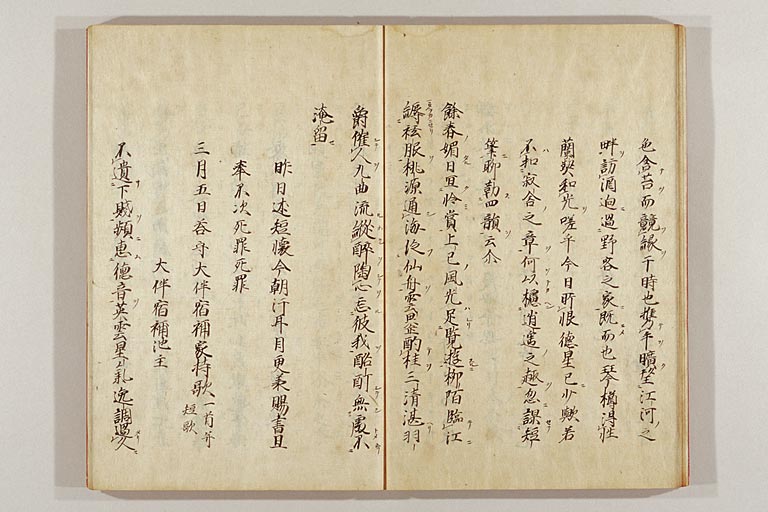 色含苔而競緑于時也携手曠望江河之
畔訪酒迥過野客之家既而也琴樽得性
蘭契和光嗟乎今日所恨德星已少歟若
不扣寂含之章何以攄逍遥之趣忽課短
筆聊勒四韻云尒
餘春媚日宜怜賞上巳風光足覧遊柳陌臨江
縟袨服桃源通海泛仙舟雲罍酌桂三清湛羽
爵催人九曲流縦酔陶心忘彼我酩酊無處不
淹留
昨日述短懷今朝汙耳目更承賜書且
奉不次死罪死罪
三月五日大伴宿祢家持歌二首并
短歌
大伴宿祢池主
不遺下賎頻恵德音英雲星氣逸調過人